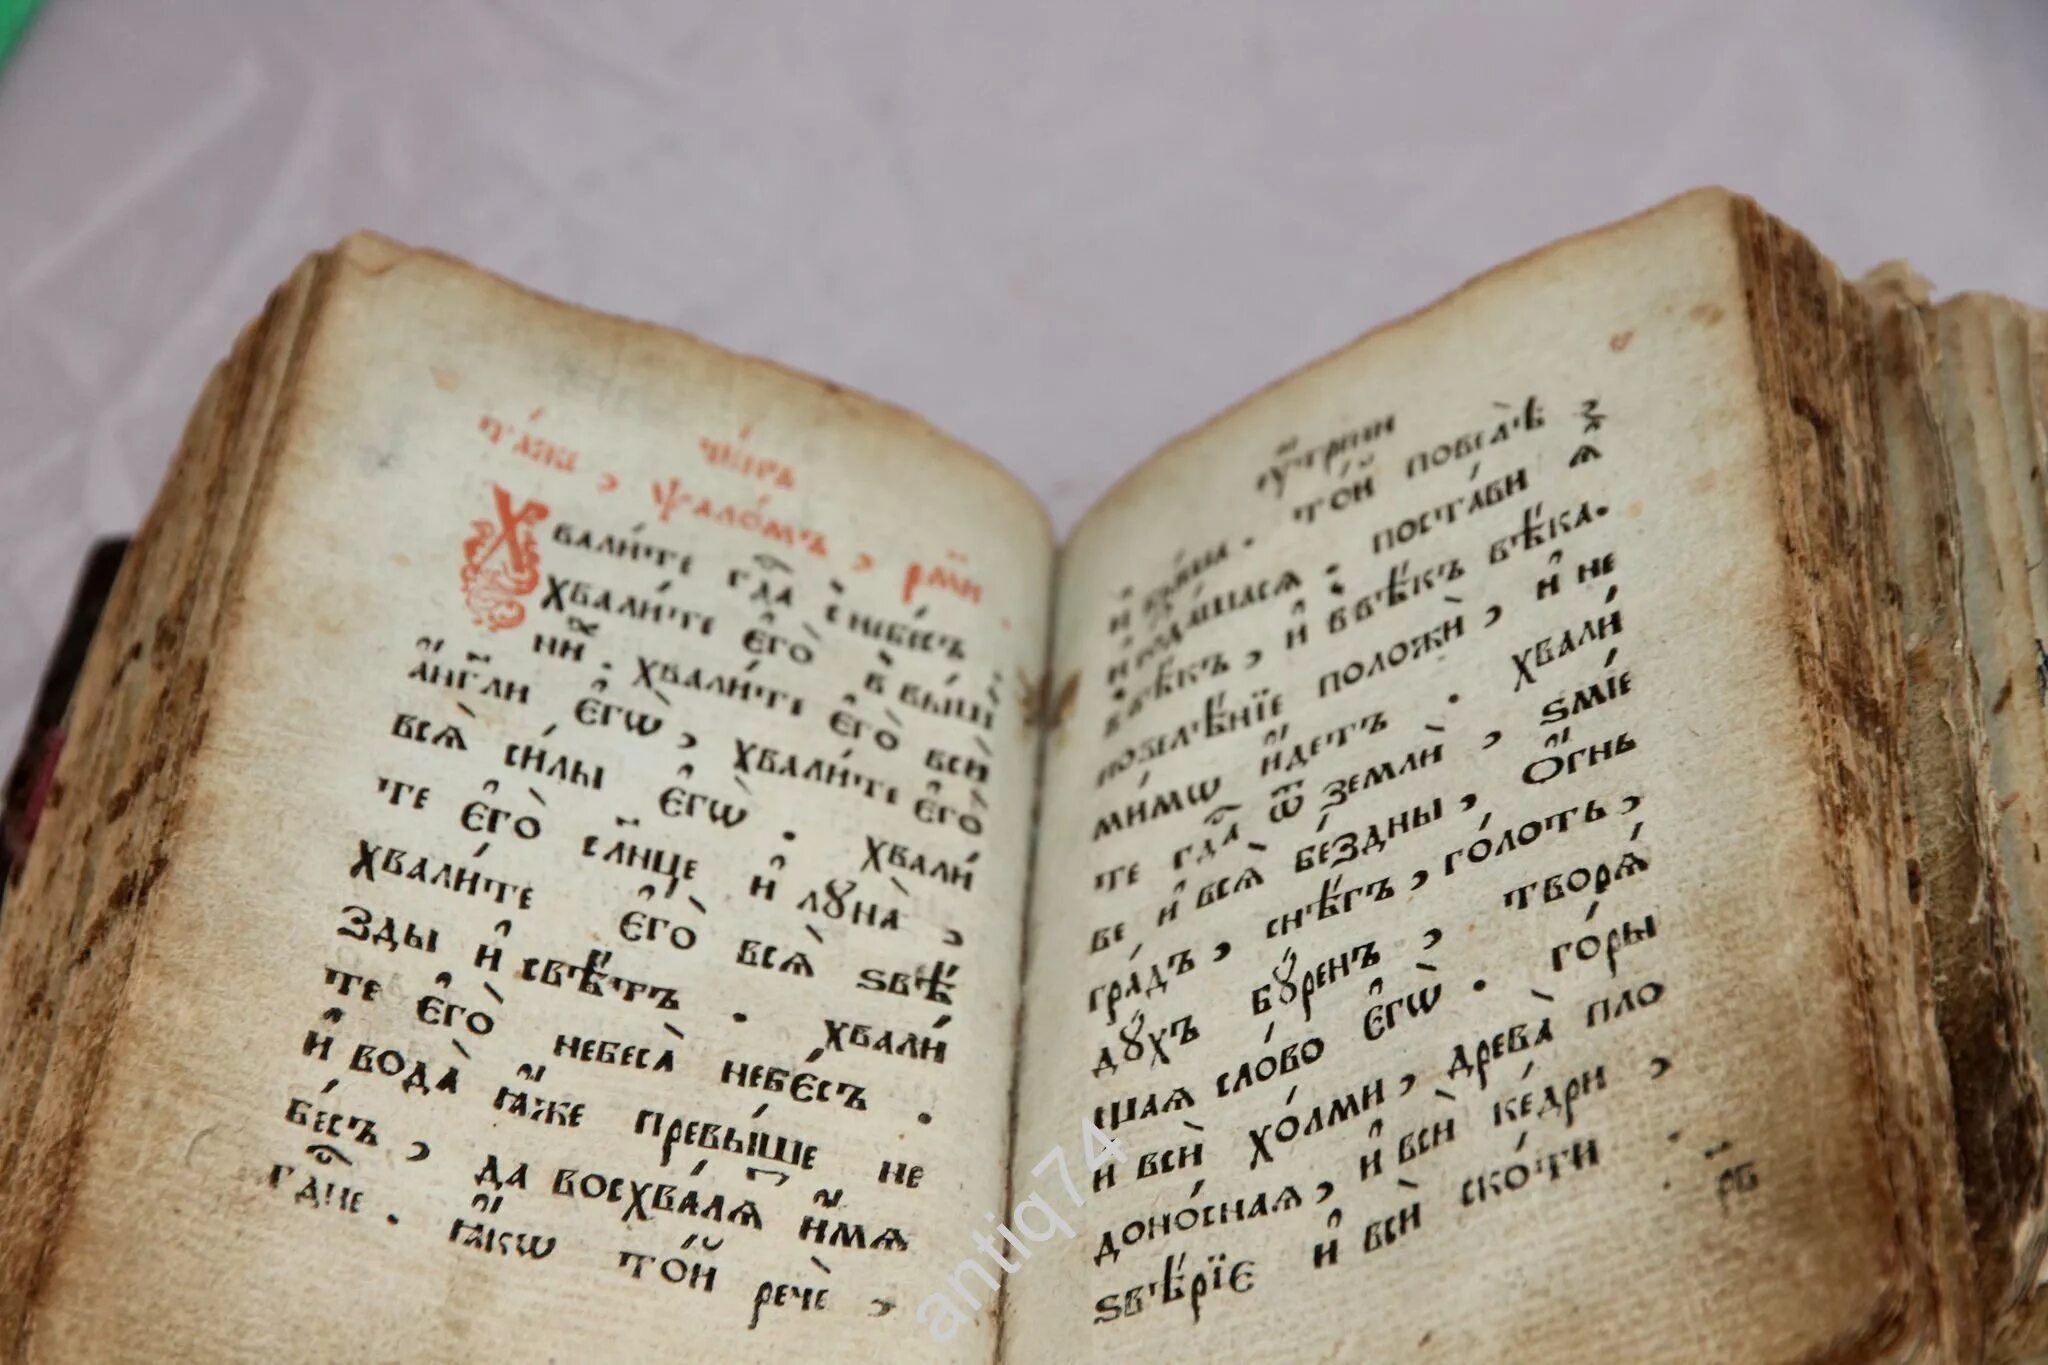 чи́нъ
та́же , ѱало́мъ , рмⷨи
Хвали́те гдⷭа с̾нб҃съ
хвали́те є҆го̀ в̾вы́ш
нн҃ . хвали́те є҆го̀ всѝ
а҆́нг҃ли є҆гѡ̀ , хвали́те є҆го̀
всѧ̀ си́лы є҆гѡ̀ . хвали́
те є҆го̀ сл҃нце и҆ лꙋна̀ ,
хвали́те є҆го̀ всѧ̀ ѕвѣ́
зды и҆ свѣ́тъ . хвали́
те є҆го̀ небеса̀ небе́съ .
и҆ вода̀ ꙗ҆́же превы́ше не
бе́съ , да восхва́лѧ и҆́мѧ
гдⷭне . ꙗ҆́кѡ то́й речѐ ,
ᲂу҆́трени
и҆ бы́ша . то́й повелѣ̀ ,
и҆ созда́шасѧ . поста́ви ѧ҆̀
в̾вѣ́къ , и҆ в̾вѣ́къ вѣ́ка .
повелѣ́нїе положѝ , и҆ не
ми́мѡ и҆́детъ . хвали́
те гдⷭа ѿ землѝ , ѕмі́е
ве и҆ всѧ̀ бе́здны , ѻ҆́гнь
гра́дъ , снѣ́гъ , го́лоть ,
дꙋ́хъ бꙋ́ренъ , творѧ́
щаѧ сло́во є҆гѡ̀ . го́ры
и҆ всѝ хо́лми , древа̀ пло
доно́снаѧ , и҆ всѝ ке́дри ,
ѕвѣ́рїе и҆ всѝ ско́ти
рв
antiq74